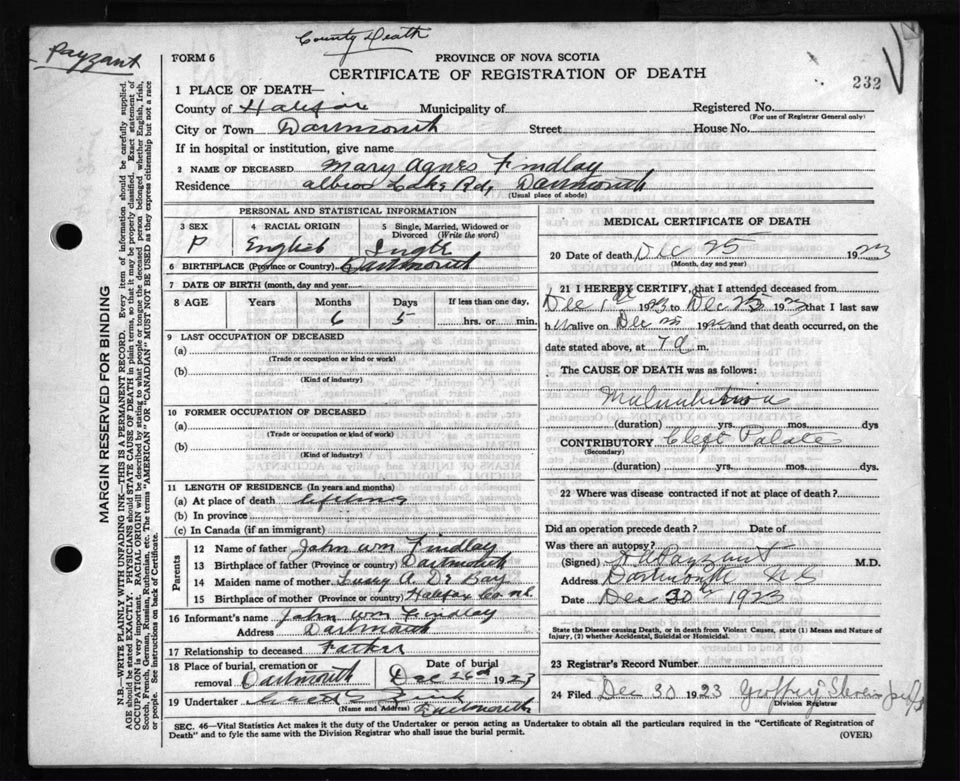 County Death
Payzant
FORM 6
PROVINCE OF NOVA SCOTIA
CERTIFICATE OF REGISTRATION OF DEATH
232
1 PLACE OF DEATH—
County of Halifax Municipality of Registered No.
(For use of Registrar General only)
City or Town Dartmouth Street House No.
If in hospital or institution, give name
2 NAME OF DECEASED Mary Agnes Findlay
Residence Albion Lake Rd, Dartmouth
(Usual place of abode)
PERSONAL AND STATISTICAL INFORMATION
3 SEX 4 RACIAL ORIGIN 5 Single, Married, Widowed or Divorced (Write the word)
English Single
6 BIRTHPLACE (Province or Country) Dartmouth
7 DATE OF BIRTH (month, day and year)
8 AGE Years Months Days If less than one day,
6 5 hrs. or min.
9 LAST OCCUPATION OF DECEASED
(a)
(Trade or occupation or kind or work)
(b)
(Kind of industry)
10 FORMER OCCUPATION OF DECEASED
(a)
(Trade or occupation or kind of work)
(b)
(Kind of industry)
11 LENGTH OF RESIDENCE (In years and months)
(a) At place of death lifetime
(b) In province
(c) In Canada (if an immigrant)
Parents
12 Name of father John Wm Findlay
13 Birthplace of father (Province or country) Dartmouth
14 Maiden name of mother A. De Bay
15 Birthplace of mother (Province or country) Halifax Co
16 Informant's name John Wm Findlay
Address Dartmouth
17 Relationship to deceased Father
18 Place of burial, cremation or removal Dartmouth Date of burial Dec 26th 1923
19 Undertaker Dartmouth
(Name and Address)
MEDICAL CERTIFICATE OF DEATH
20 Date of death Dec 25 1923
(Month, day and year)
21 I HEREBY CERTIFY, that I attended deceased from
Dec 1st 1923 to Dec 25 1923 that I last saw
h alive on Dec 25 192 and that death occurred, on the
date stated above, at 7 a m.
The CAUSE OF DEATH was as follows:
Malnutrition
(duration) yrs. mos. dys
CONTRIBUTORY Cleft Palate
(Secondary)
(duration) yrs. mos. dys.
22 Where was disease contracted if not at place of death?
Did an operation precede death? Date of
Was there an autopsy?
(Signed) Payzant M.D.
Address Dartmouth N S
Date Dec 30th 1923
State the Disease causing Death, or in death from Violent Causes, state (1) Means and Nature of
Injury, (2) whether Accidental, Suicidal or Homicidal.
23 Registrar's Record Number
24 Filed Dec 30 1923 Stevens
Division Registrar
SEC. 46—Vital Statistics Act makes it the duty of the Undertaker or person acting as Undertaker to obtain all the particulars required in the "Certificate of Registration of
Death" and to fyle the same with the Division Registrar who shall issue the burial permit.
(OVER)
MARGIN RESERVED FOR BINDING
N.B.—WRITE PLAINLY WITH UNFADING INK—THIS IS A PERMANENT RECORD. Every item of information should be carefully supplied.
AGE should be stated EXACTLY. PHYSICIANS should STATE CAUSE OF DEATH in plain terms, so that it may be properly classified. Exact statement of
OCCUPATION is very important. RACIAL ORIGIN will be described by stating to what people or tongue the deceased person belonged whether English, Irish,
Scotch, French, German, Russian, Ruthenian, etc. The terms "AMERICAN" or "CANADIAN" MUST NOT BE USED as they express citizenship but not a race
or people. See instructions on back of Certificate.